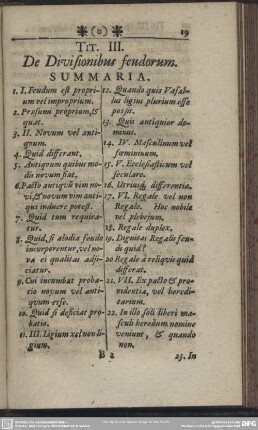 (o) 19
TIT. III.
De Divisionibus feudorum.
SUMMARIA.
1. I. Feudum est propri-
um vel improprium.
2. Præsumi proprium, &
quat.
3. II. Novum vel anti-
quum.
4. Quid differant.
5. Antiquum quibus mo-
dis novum fiat.
6. Pacto antiquũ vim no-
vi, & novum vim anti-
qui induere potest.
7. Quid tum requira-
tur.
8. Quid, si alodia feudo
incorporentur, vel no-
va ei qualitas adji-
ciatur.
9. Cui incumbat proba-
tio novum vel anti-
quum esse.
10. Quid si deficiat pro-
batio.
11. III. Ligium vel non li-
gium.
12. Quando quis Vasal-
lus ligius plurium esse
possit.
13. Quis antiquior do-
minus.
14. IV. Masculinum vel
fœmininum.
15. V. Ecclesiasticum vel
seculare.
16. Utriusq; differentia.
17. VI. Regale vel non
Regale. Hoc nobile
vel plebejum.
18. Regale duplex.
19. Dignitas Regalis feu-
di quid?
20 Regale à reliquis quid
differat.
21. VII. Ex pacto & pro-
videntia, vel heredi-
tarium.
22. In illo soli liberi ma-
sculi heredum nomine
veniunt, & quando
non.
B 2 23. In